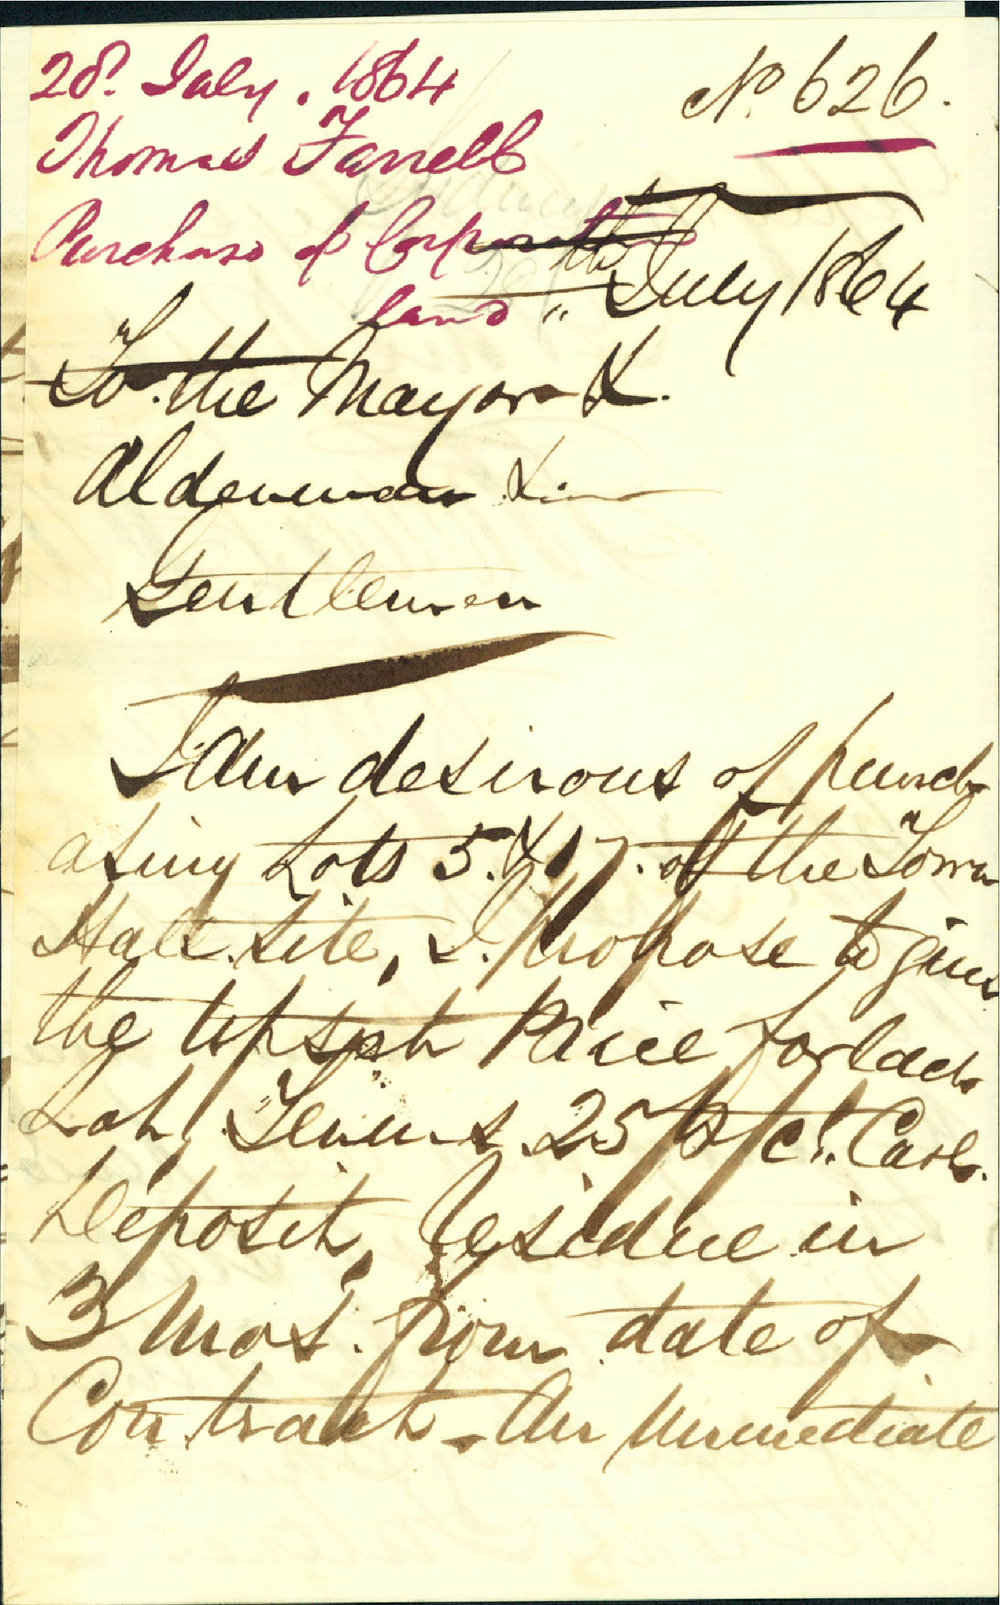 28. July. 1864
No. 626.
Thomas Farrell
Purchase of Corporation
land
July 1864
To the Mayor &
Aldermen
Gentlemen
I Am desirous of purch
asing Lots 5. & 17. of the Town
Hall site, I propose to give
the upset Price for each
Lot, Terms 25 P/ct. Cash.
Deposit, Residue in
3 Mos. from date of
Contract - An immediate